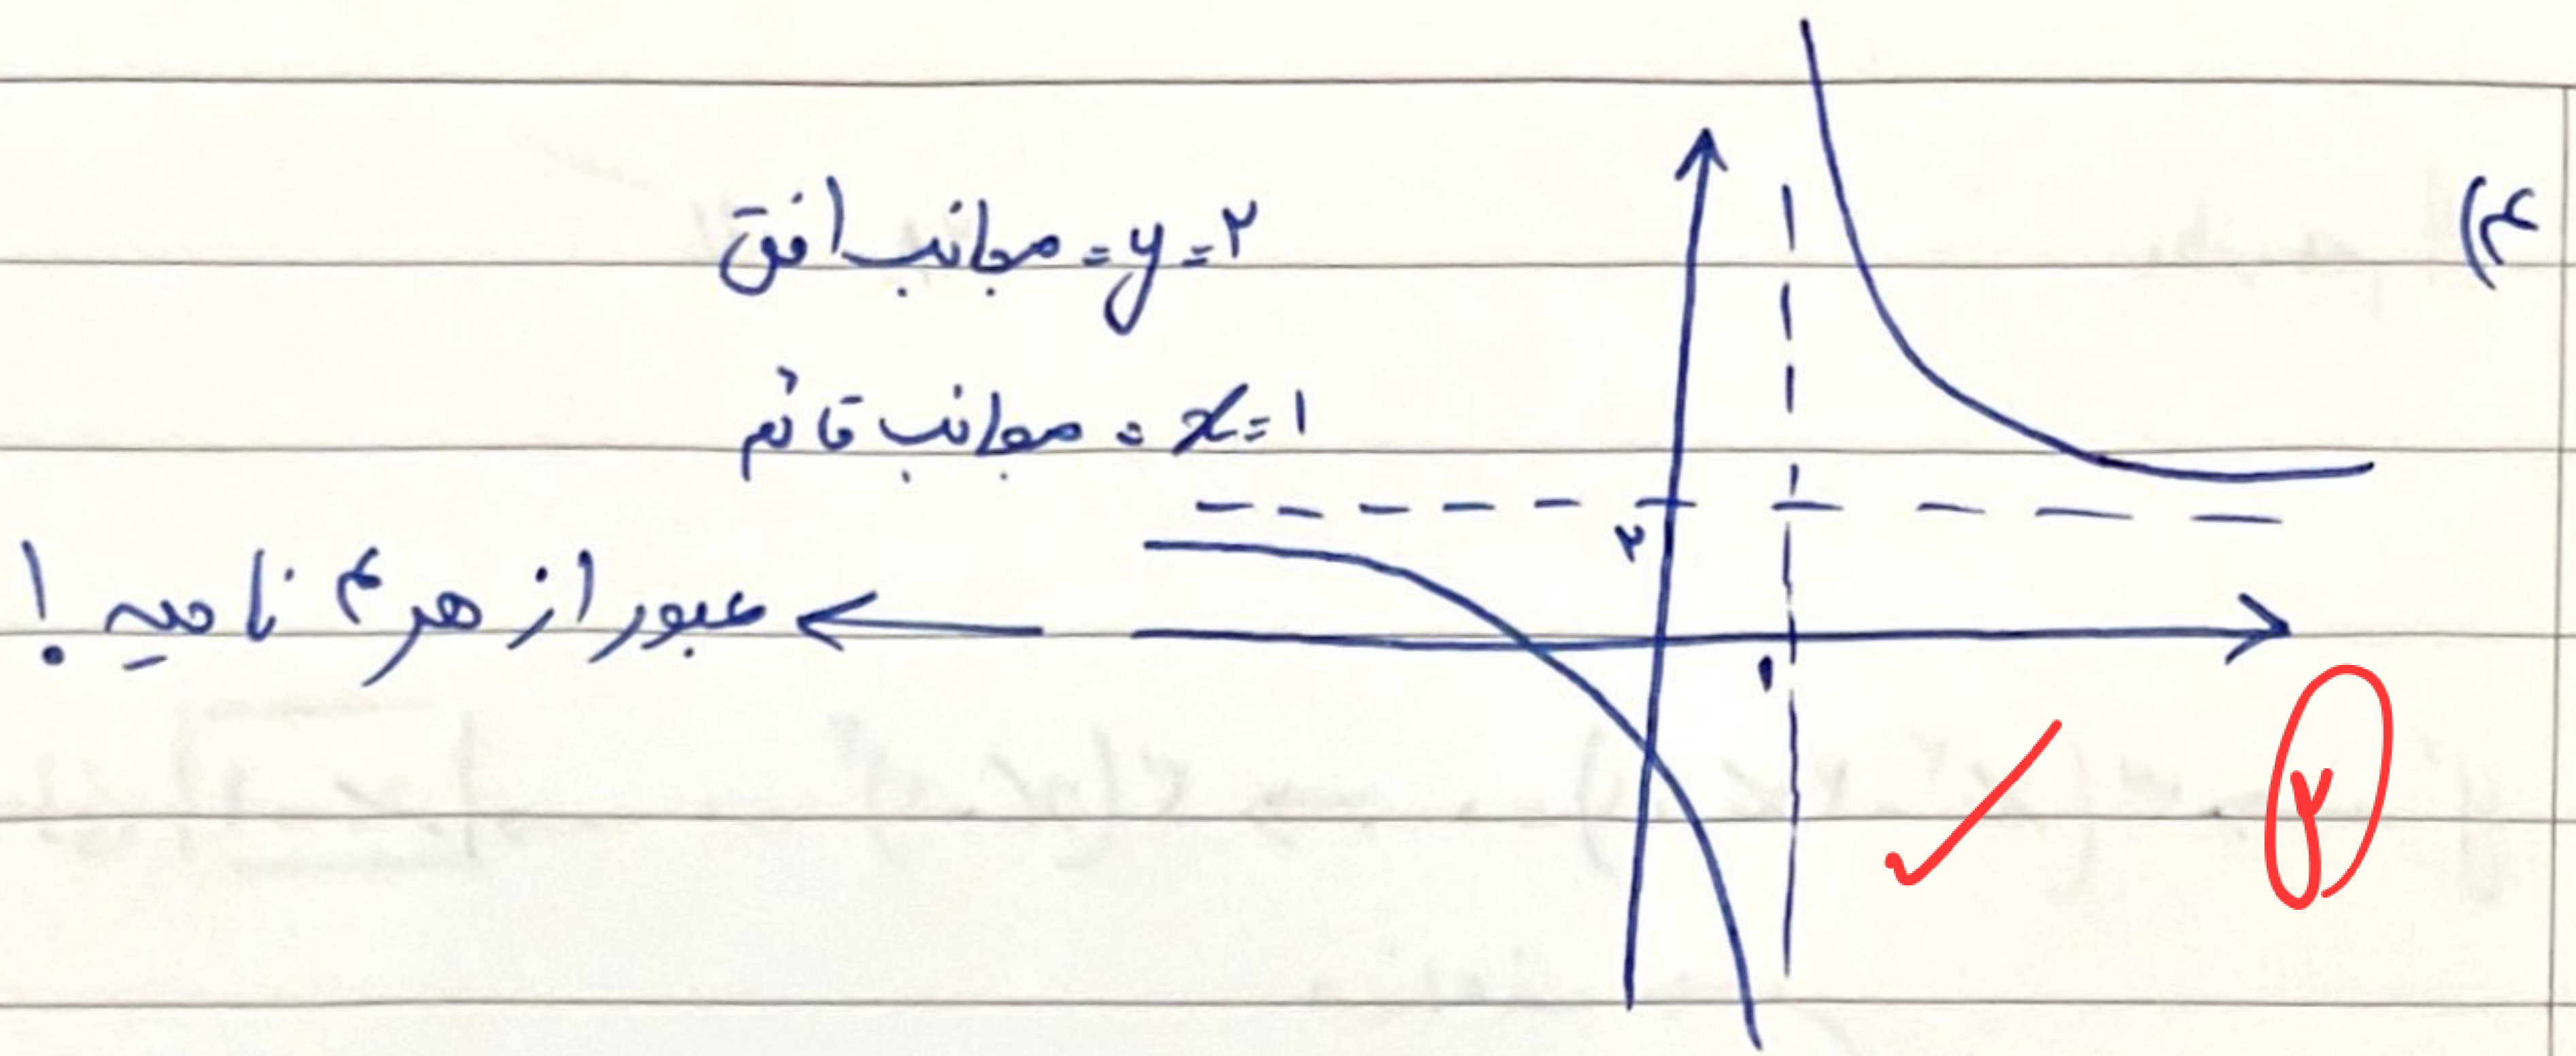 ۴)
مجانب افقی = y = ۲
مجانب قائم = x = ۱
۲
عبور از هر ۴ ناحیه !
۱
۲